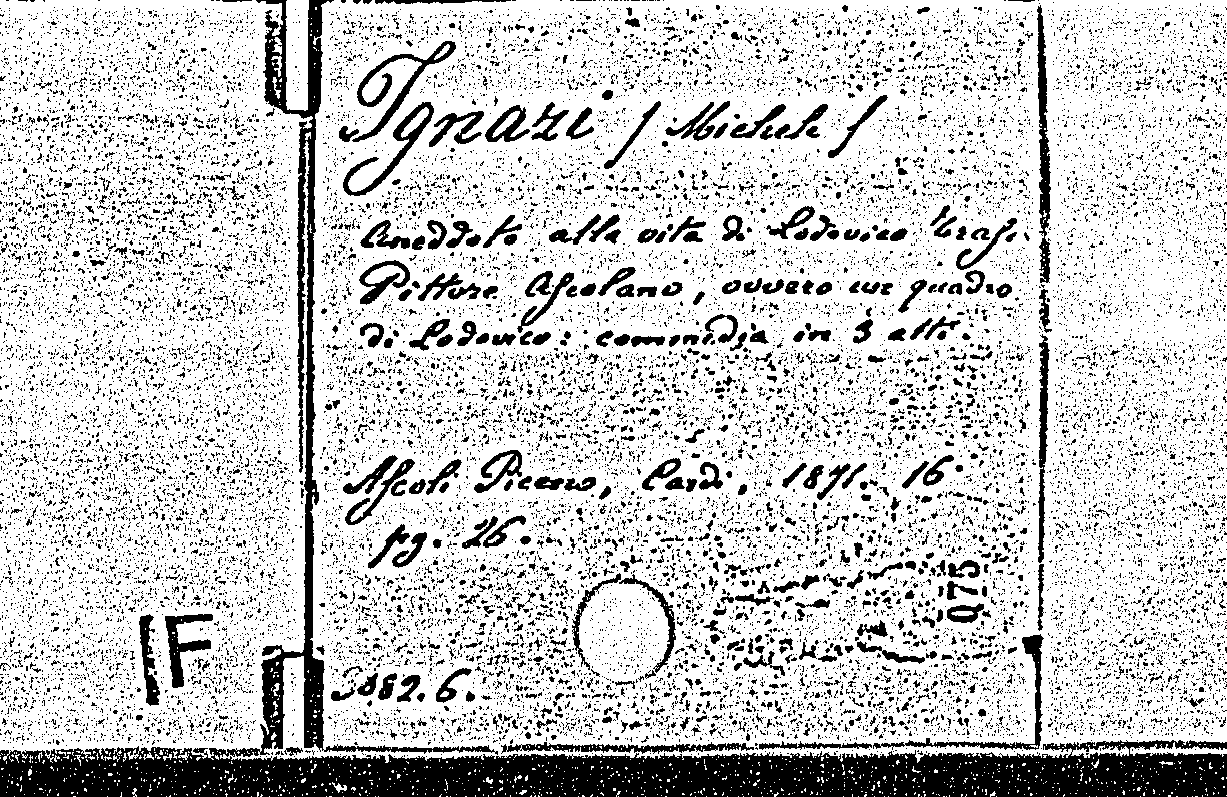 Ignazi / Michele /
Aneddoto alla vita di Lodovico Trasi.
Pittore Ascolano, ovvero un quadro
di Lodovico: commedia in 3 atti.
Ascoli Piceno, Cardi, 1871. 16°
pg. 26.
Q75
IF
3082.6.